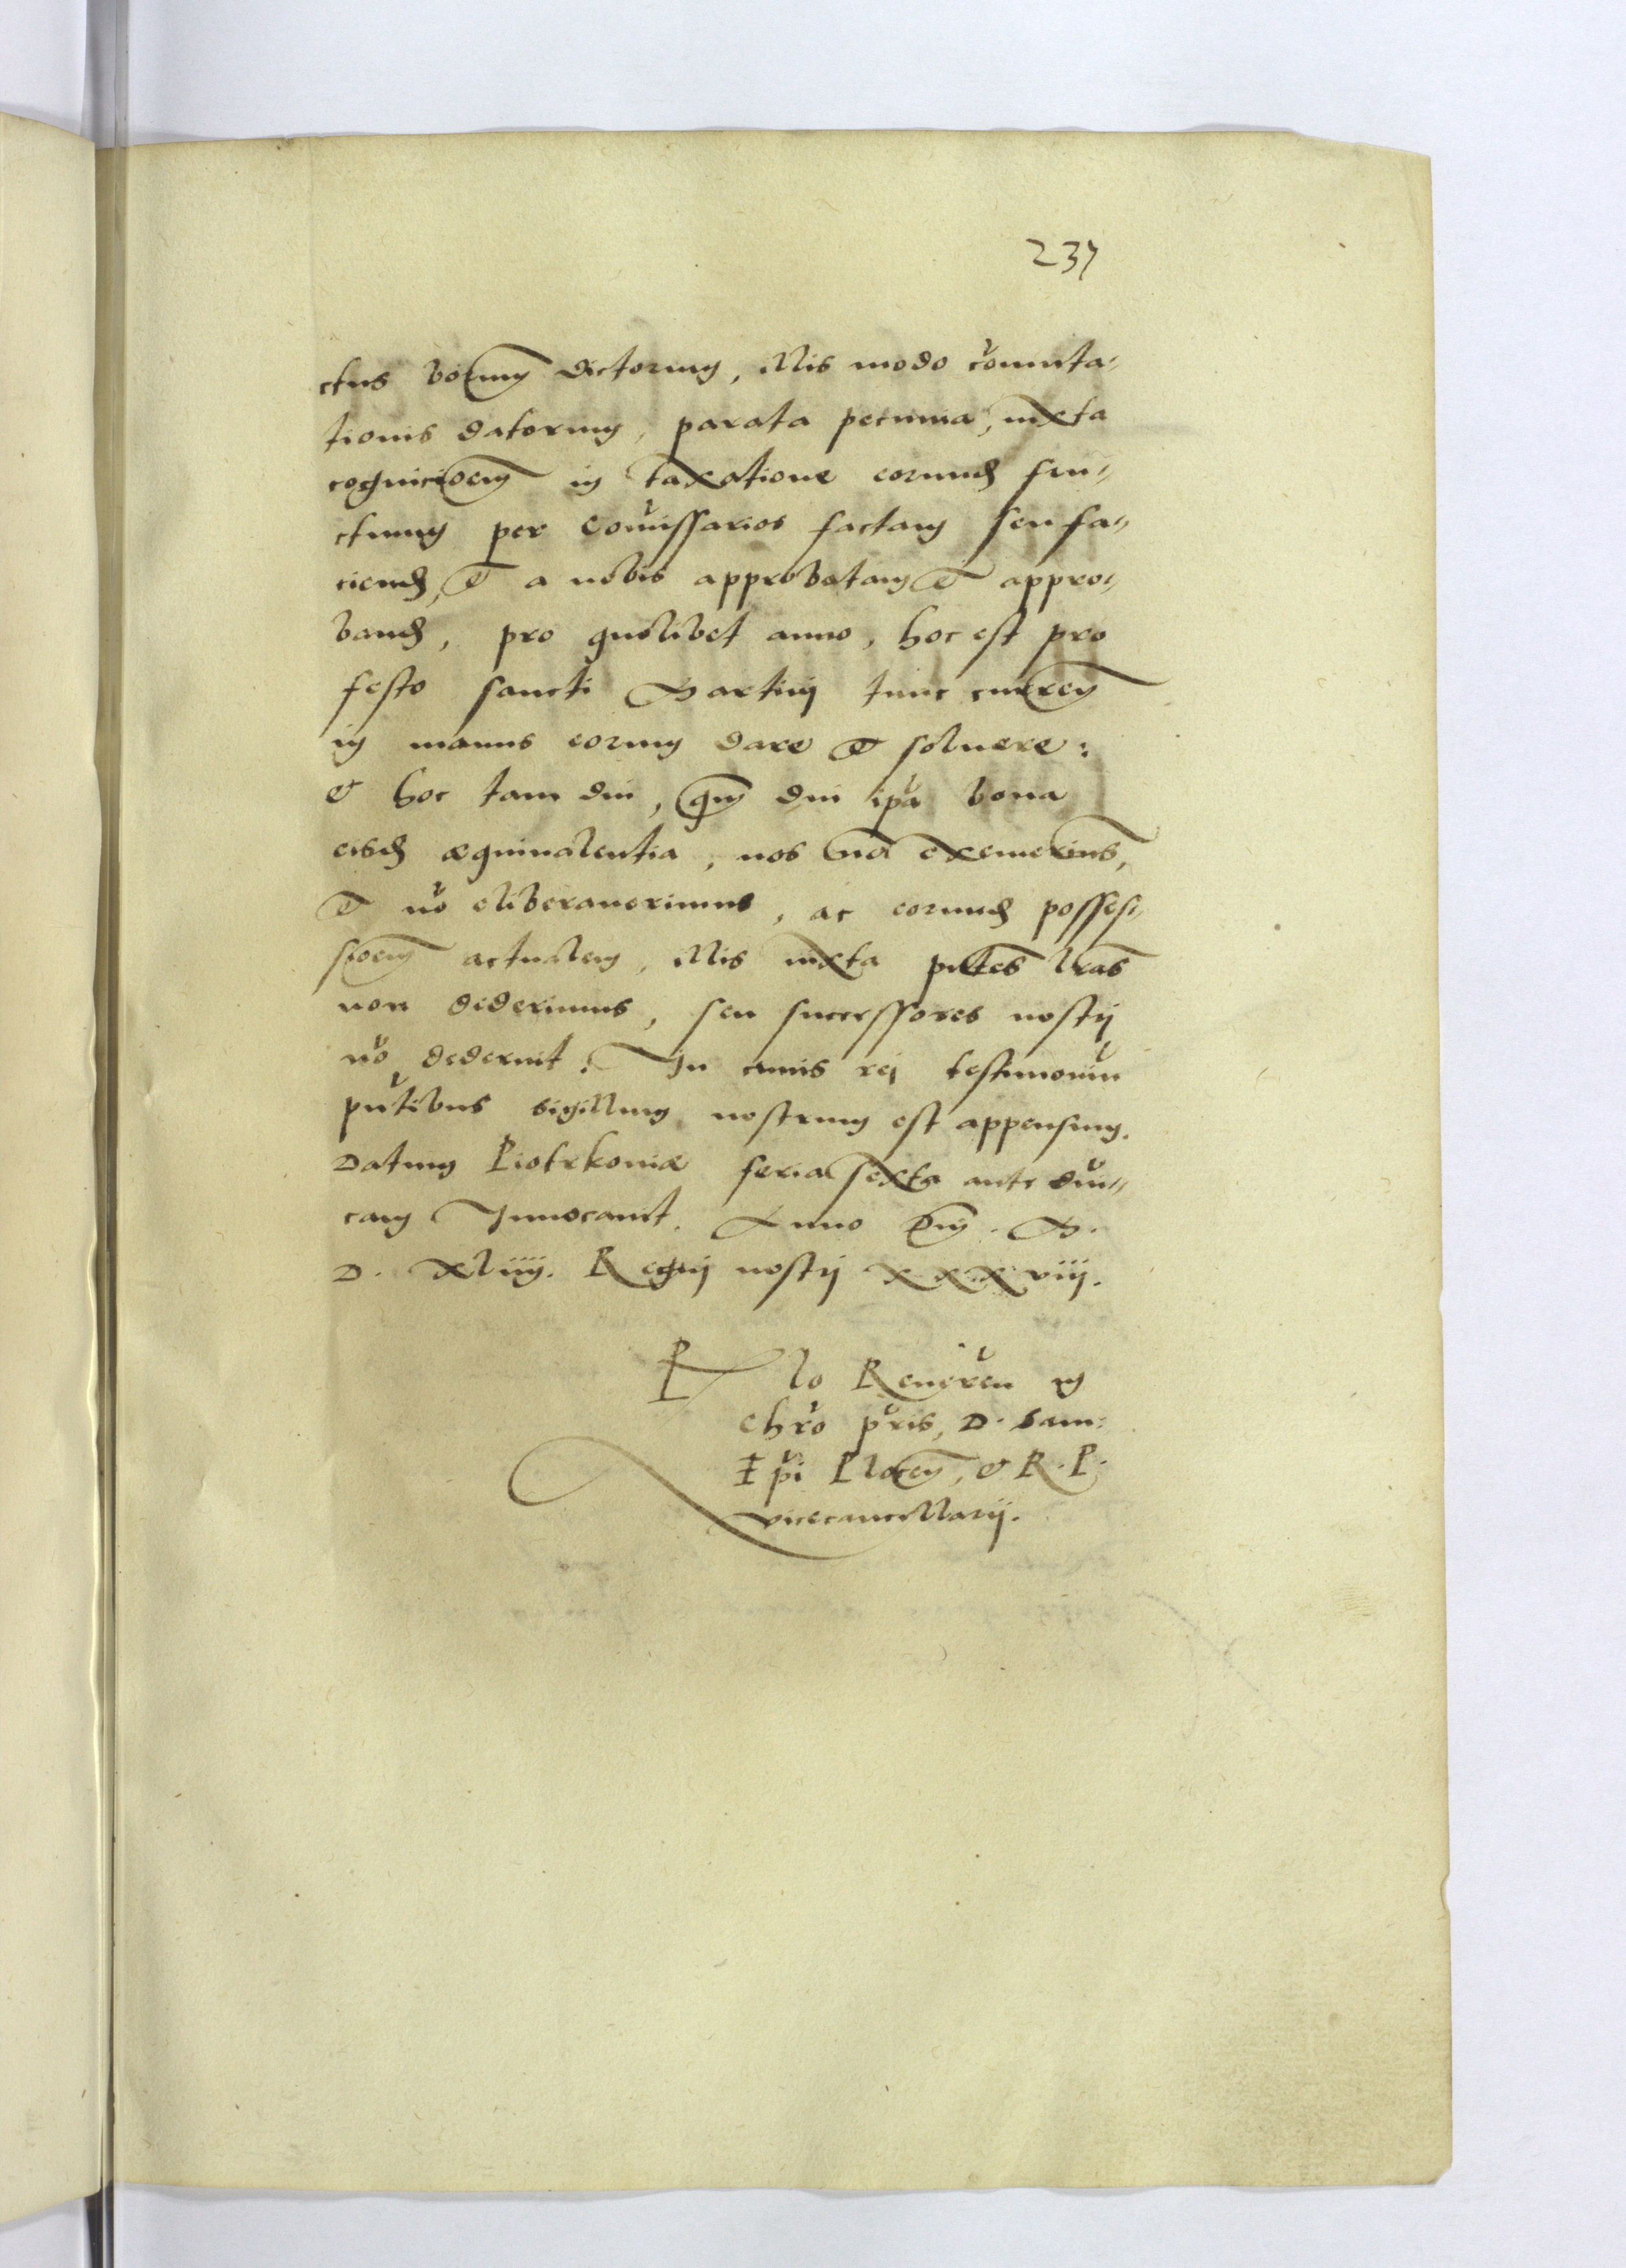 237
ctus bonorum dictorum, illis modo comuta,
tionis datorum, parata pecunia, iuxta
cognicioem in taxatione eorumd fru,,
ctuum per Comissarios factam seu fa,,
ciend, et a nobis approbatam et appro,,
band, pro quolibet anno, hoc est pro
festo sancti Martini tunc curren
in manus eorum dare et soluere:
et hoc tam diu, qm diu ipa bona
eisd æquiualentia, nos exemerims,
et no eliberauerimus, ac eorumd posses,,
sioem actualem, illis iuxta pntes lras
non dederimus, seu successores nostri
no dederint. In cuius rei testimoniu
pntibus sigillum nostrum est appensum.
Datum Piotrkoniæ feria sexta ante dni,,
cam Inuocauit. Anno Dni. M.
D. xliiij. Regni nostri xxxviij.
Rlo Reueren in
Chro pris, D. Sam:
Epi Plocen, et R. P.
vicecancellarij.